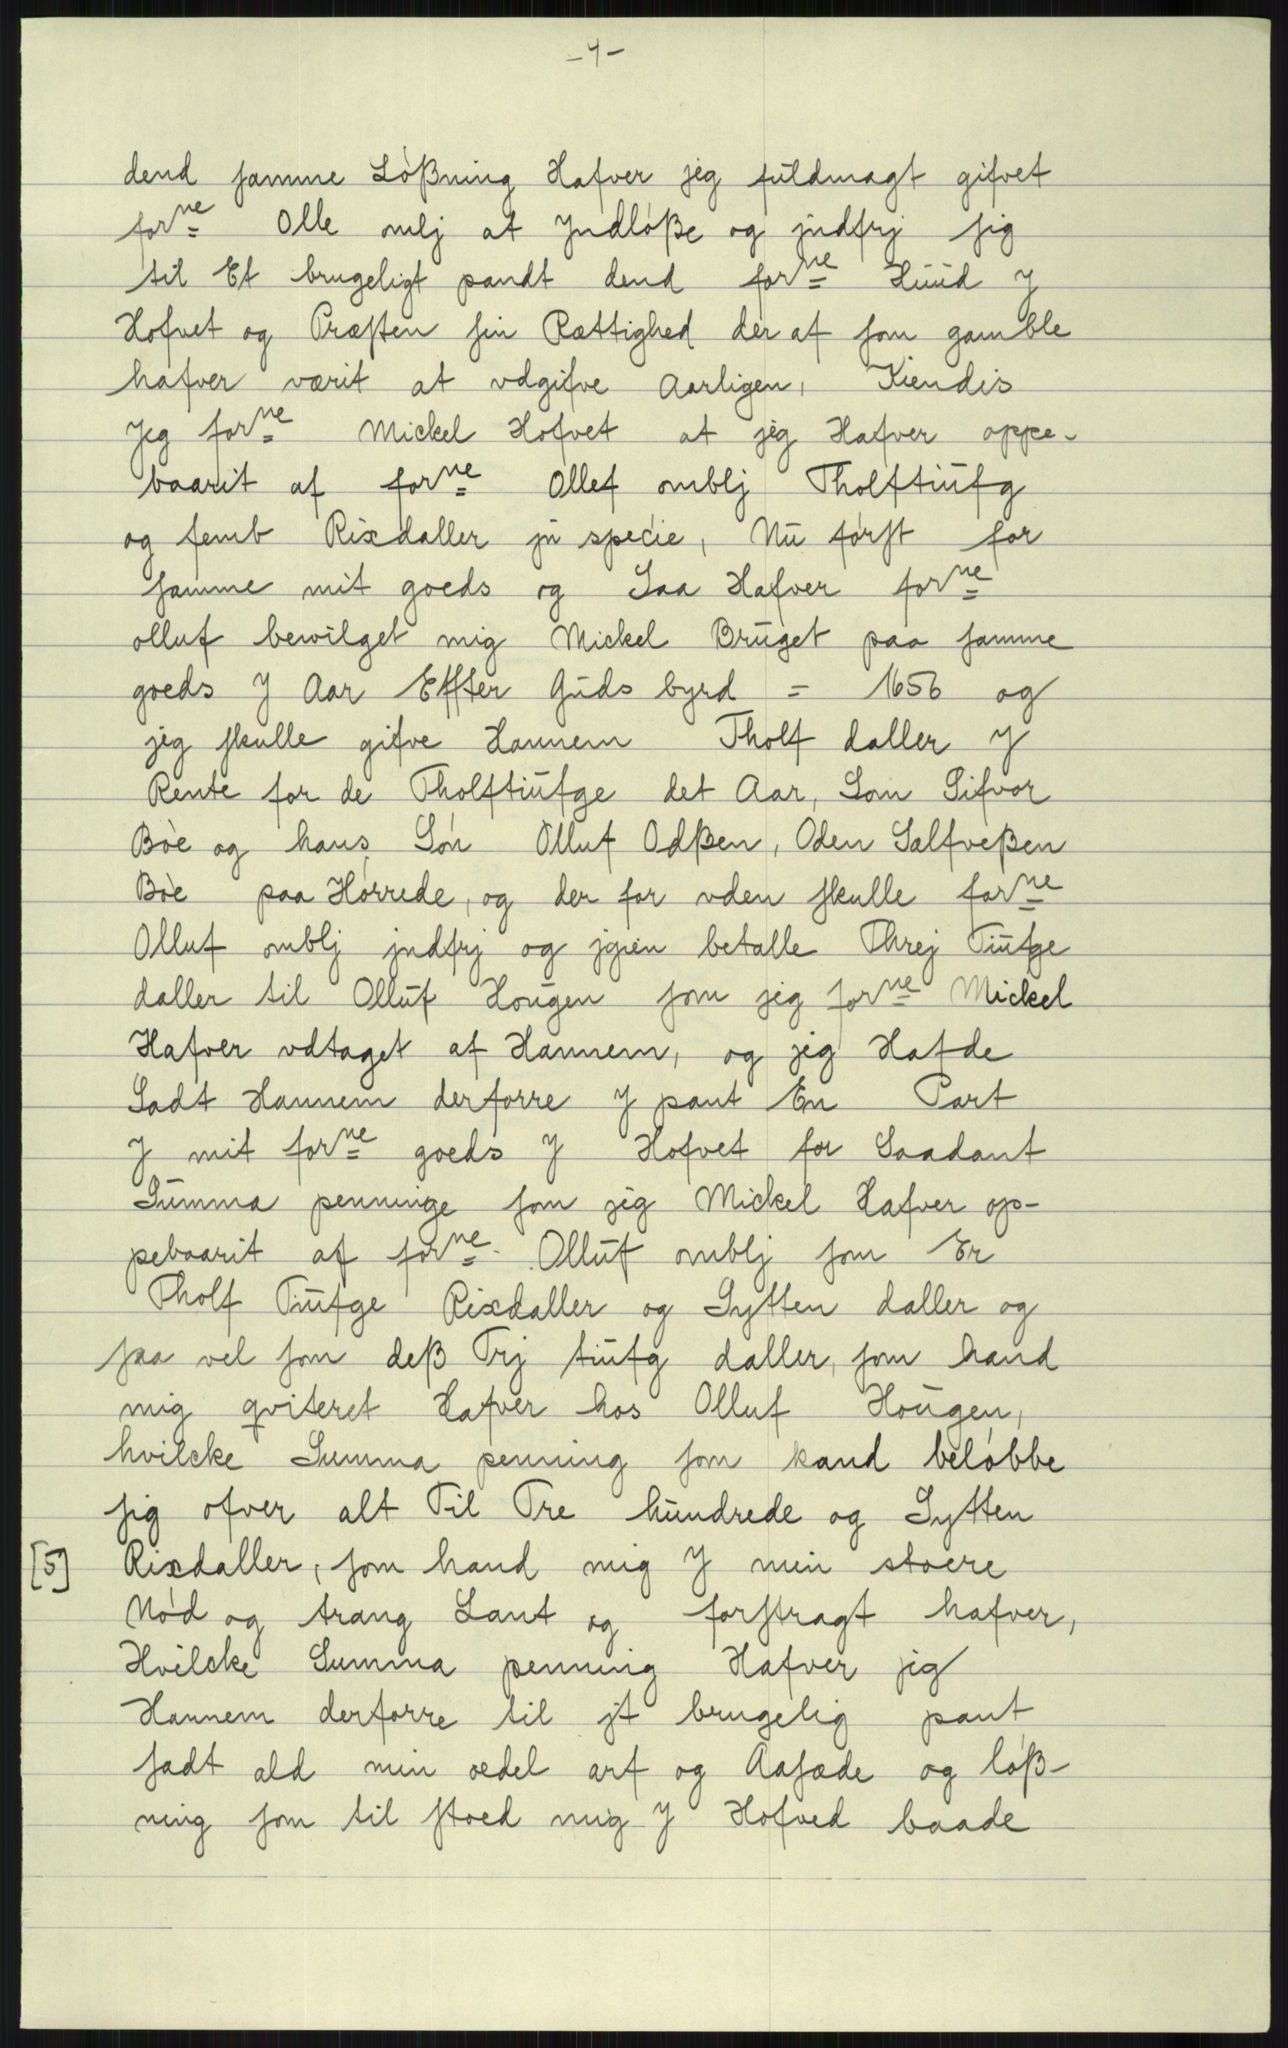 -4-
dend samme Lößning Hafver jeg fuldmagt gifvet
for<sup>ne</sup> Olle omlj at Jndlöße og jndfrj sig
til Et brugeligt pandt dend for<sup>ne</sup> Huud J
Hofvet og Præsten sin Rettighed der af som gamble
hafver værit at vdgifve Aarligen, Kiendis
Jeg for<sup>ne</sup> Mickel Hofvet at jeg Hafver oppe-
baarit af for<sup>ne</sup> Ollef omblj Tholftiufg
og femb Rixdaller jn specie, Nu först for
samme mit goeds og Saa Hafver for<sup>ne</sup>
olluf bewilget mig Mickel Bruget paa samme
goeds J Aar Effter Guds byrd = 1656 og
jeg skulle gifve Hannem Tholf daller J
Rente for de Tholftiufge det Aar, Som Sifvor
Böe og hans Sön Olluf Odßen, Oden Salfveßen
Böe paa Hörrede, og der for vden skulle for<sup>ne</sup>
Olluf omblj jndfrj og jgien betalle Threj Tiufge
daller til Olluf Hougen som jeg for<sup>ne</sup> Mickel
Hafver vdtaget af Hannem, og jeg Hafde
Sadt Hannem derforre J pant En Part
J mit for<sup>ne</sup> goeds J Hofvet for Saadant
Summa penninge som jeg Mickel Hafver op-
pebaarit af for<sup>ne</sup> Olluf omblj som Er
Tholf Tiufge Rixdaller og Sytten daller og
saa vel som deß Trj tiufg daller, som hand
mig qviteret Hafver hos Olluf Hougen,
hvilcke Summa penning som kand belöbbe
sig ofver alt Til Tre hundrede og Sytten
[5] Rixdaller, som hand mig J min stoere
Nöd og trang Lant og forstragt hafver,
Hvilcke Summa penning Hafver jeg
Hannem derforre til jt brugelig pant
sadt ald min oedel arf og Aasæde og löß-
ning som til stoed mig J Hofved baade